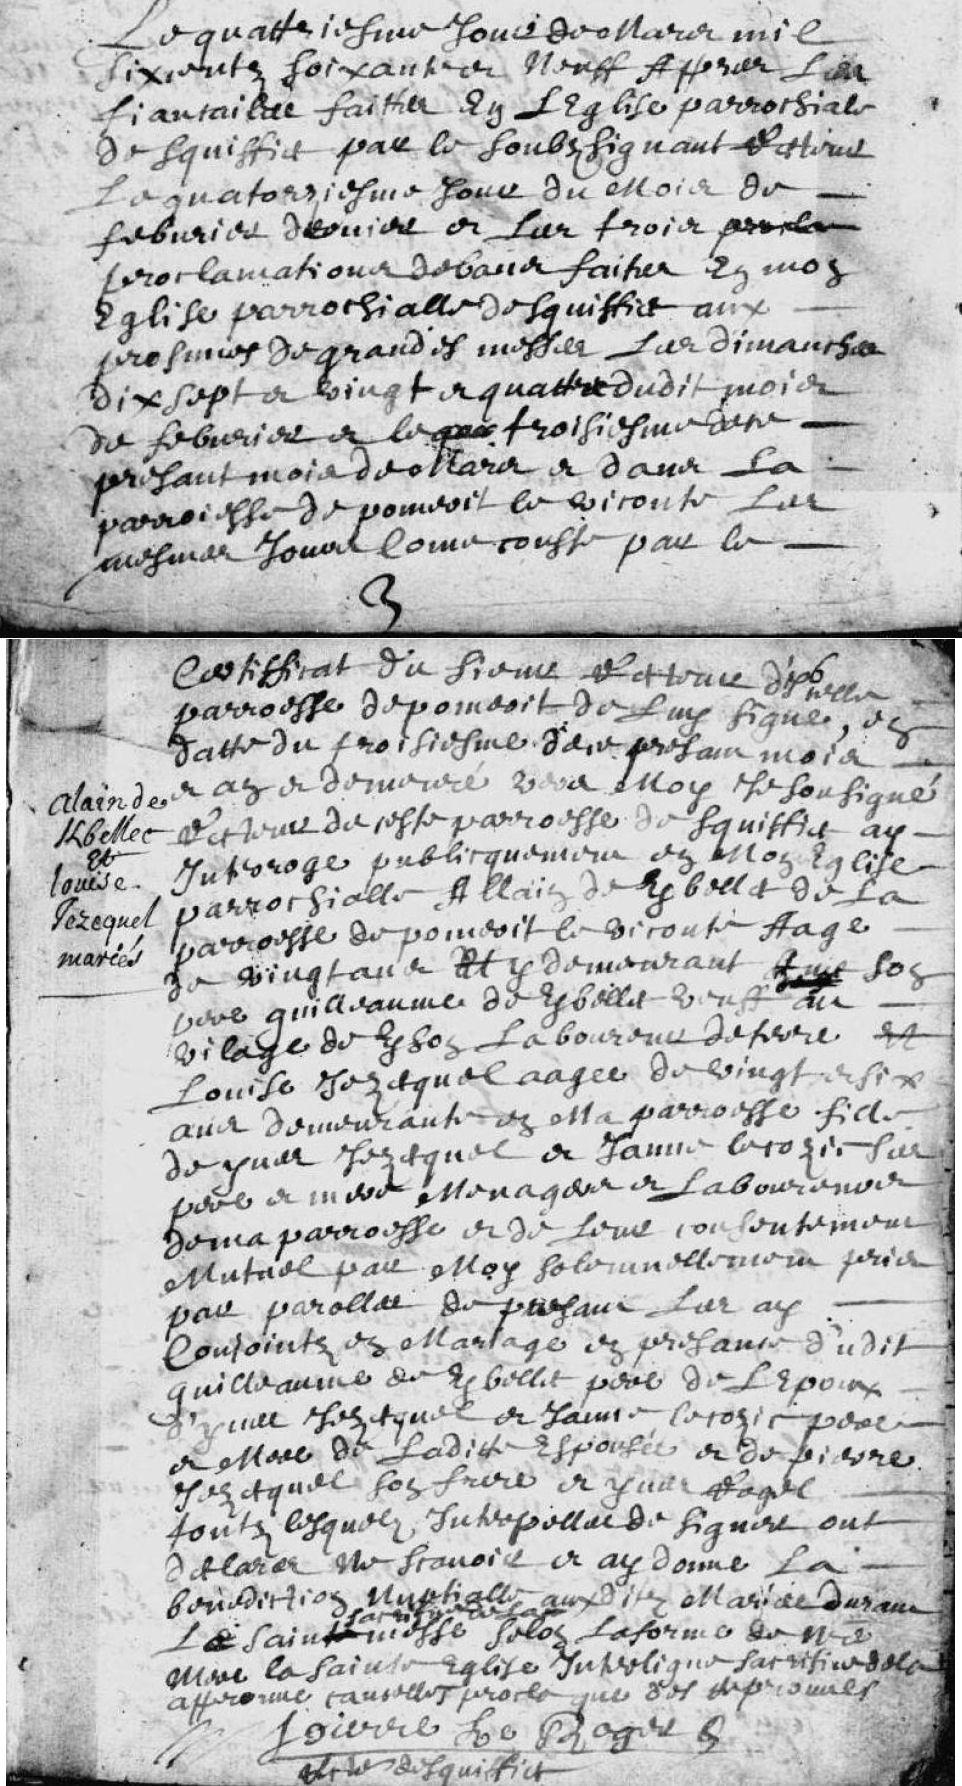 Le quattriesme Jour de Mars mil
sixcents soixante et Neuff Appres Les
fiancailles faittes En L'Eglise parrochiale
de squiffiec par le soubzsignant Recteur
Le quatorziesme Jour du Mois de
feburier dernier et Les trois procla
proclamations de bans faittes En mon
Eglise parrochialle de squiffiec aux
prosnes de grandes messes Les dimanches
dixsept et vingt et quattre dudit mois
de feburier et le troisiesme de ce
presant mois de Mars et dans La
parroiesse de pomerit le viconte Les
mesmes Jours Come conste par le
3
Certifficat du sieur Recteur de
parroesse de pomerit de Luy signé, en
datte du troisiesme de ce presant mois
et an et demeuré vers Moy Je sousigné
Recteur de ceste parroesse de squiffiec ay
Interogé publicquement en Mon Eglise
parrochialle Allain de Kbellec de La
parroesse de pomerit le viconte Aagé
de vingt ans Et y demeurant son
pere guilleaume de Kbellec veuff au
vilage de Laboureur de terre Et
Louise Jezequel aagee de vingt et six
ans demeurante en Ma parroesse fille
de yves Jezequel et Janne lecozic ses
pere et mere Menagers et Laboureurs
de ma parroesse et de Leur consentement
Mutuel par Moy solemnellement pris
par parolles de presant Les ay
Conjointz en Mariage en presance dudit
guilleaume de Kbellec pere de L'Epoux
d'yves Jezequel et Janne lecozic pere
et Mere de Laditte Espousée et de pierre
Jezequel son frere et yves
toutz lesquelz Interpelles de signer ont
declarer Ne scavoir et ay donné La
benediction Nuptialle auxditz Mariés durant
sacrifice de la
La sainte messe selon La forme de Nre
Mere la sainte Eglise Interligne sacrifice de la
approuve
pierre Le Roger
Rr de squiffiec
Alain de
Kbellec
et
louise
Jezequel
mariés